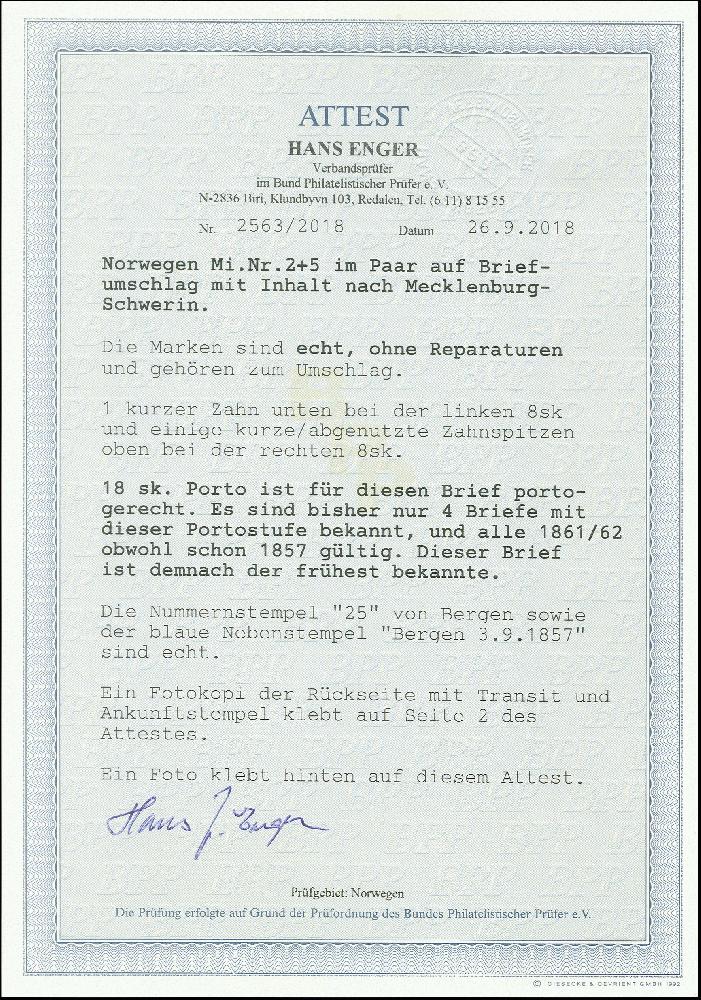 ATTEST
HANS ENGER
Verbandsprüfer
im Bund Philatelistischer Prüfer e. V.
N-2836 Biri, Klundbyvn 103, Redalen, Tel. (6 11) 8 15 55
Nr. 2563/2018 Datum 26.9.2018
Norwegen Mi.Nr.2+5 im Paar auf Brief-
umschlag mit Inhalt nach Mecklenburg-
Schwerin.
Die Marken sind echt, ohne Reparaturen
und gehören zum Umschlag.
1 kurzer Zahn unten bei der linken 8sk
und einige kurze/abgenutzte Zahnspitzen
oben bei der rechten 8sk.
18 sk. Porto ist für diesen Brief porto-
gerecht. Es sind bisher nur 4 Briefe mit
dieser Portostufe bekannt, und alle 1861/62
obwohl schon 1857 gültig. Dieser Brief
ist demnach der frühest bekannte.
Die Nummernstempel "25" von Bergen sowie
der blaue Nebenstempel "Bergen 3.9.1857"
sind echt.
Ein Fotokopi der Rückseite mit Transit und
Ankunftstempel klebt auf Seite 2 des
Attestes.
Ein Foto klebt hinten auf diesem Attest.
Hans J. Enger
Prüfgebiet: Norwegen
Die Prüfung erfolgte auf Grund der Prüfordnung des Bundes Philatelistischer Prüfer e.V.
© GIESECKE & DEVRIENT GMBH 1992